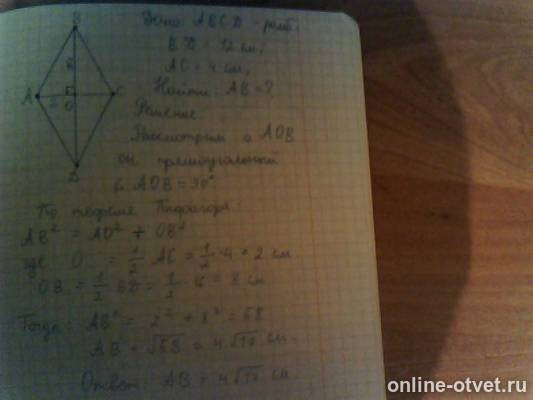 B
6
A
2
O
C
D
Дано: ABCD - ромб,
BD = 12 см,
AC = 4 см,
Найти: AB = ?
Решение
Рассмотрим Δ AOB
он прямоугольный
∠ AOB = 90°
По теореме Пифагора:
AB² = AO² + OB²
где O = 1/2 AC = 1/2 · 4 = 2 см
OB = 1/2 BD = 1/2 · = 8 см
Тогда: AB² = 2² + 8² = 68
AB = √68 = 4√17 см.
Ответ: AB = 4√17 см
online-otvet.ru